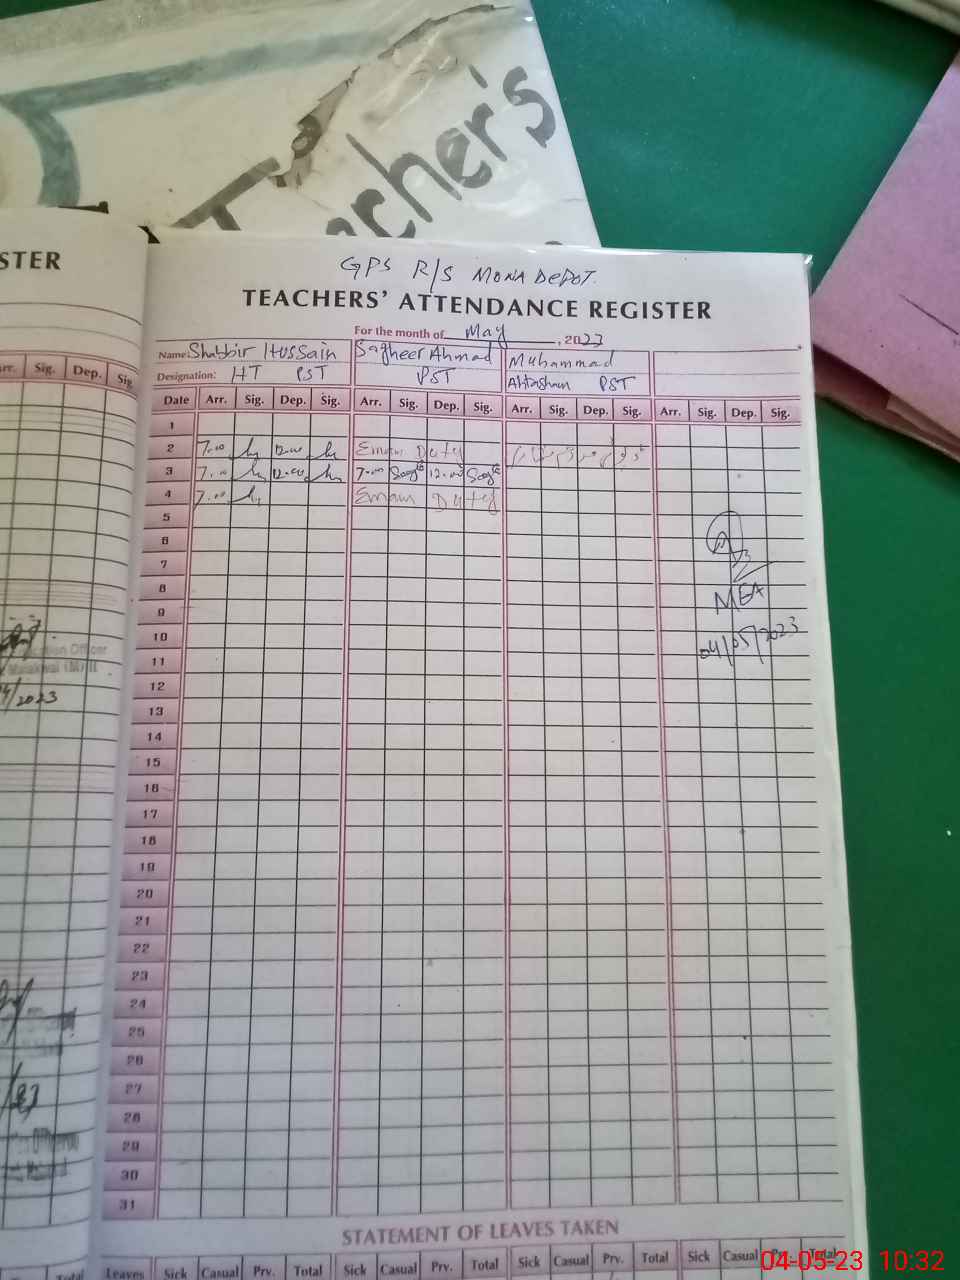 Teacher's
STER
GPS R/S MONA DEPOT.
TEACHERS' ATTENDANCE REGISTER
For the month of May, 2023
Name: Shabbir Hussain Sagheer Ahmad Muhammad
Designation: HT PST PST Ahtasham PST
Arr. Sig. Dep. Sig
Date Arr. Sig. Dep. Sig. Arr. Sig. Dep. Sig. Arr. Sig. Dep. Sig. Arr. Sig. Dep. Sig.
1
2 7.00 12.00 Emam Duty
3 7.00 12.00 7.00 12.00
4 7.00 Emam Duty
5
6
7
8
MEA
9
10
04/05/2023
11
12
13
14
15
16
17
18
19
20
21
22
23
24
25
26
27
28
29
30
31
STATEMENT OF LEAVES TAKEN
Total Leaves Sick Casual Prv. Total Sick Casual Prv. Total Sick Casual Prv. Total Sick Casual Prv. Total
04-05-23 10:32